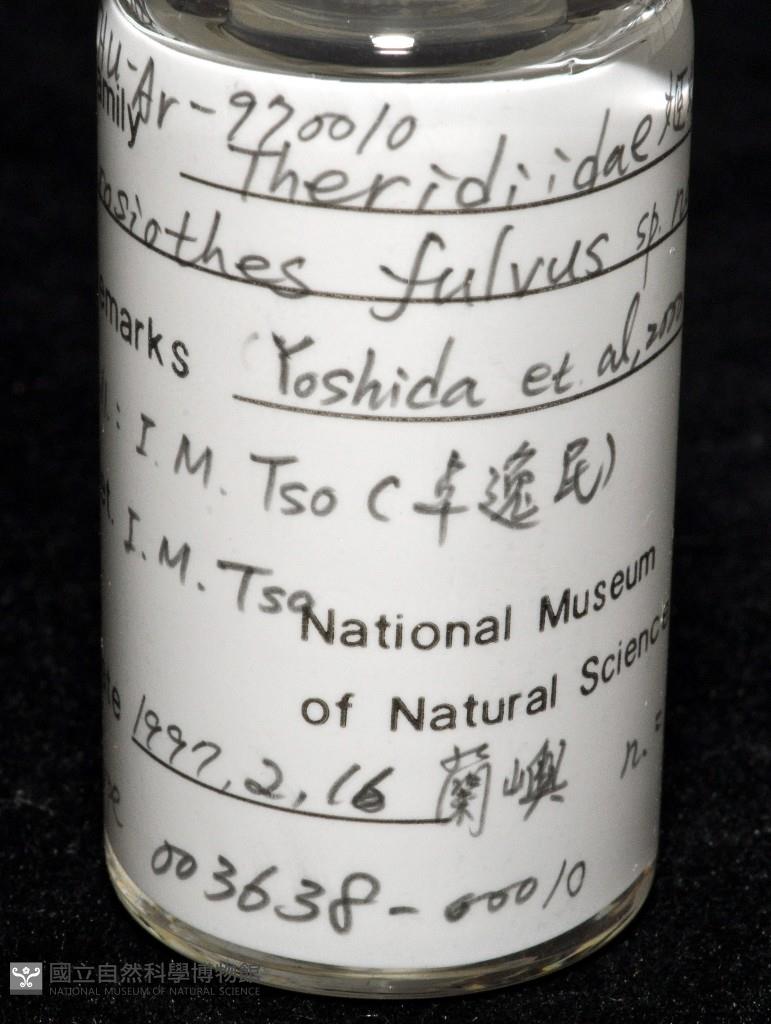 HU-Ar-970010
amily Theridiidae 姬
osiothes fulvus sp. n
emarks Yoshida et al, 2000
: I. M. Tso (卓逸民)
et. I. M. Tso
National Museum
of Natural Science
te 1997, 2, 16 蘭嶼 n. =
003638-00010
國立自然科學博物館
NATIONAL MUSEUM OF NATURAL SCIENCE